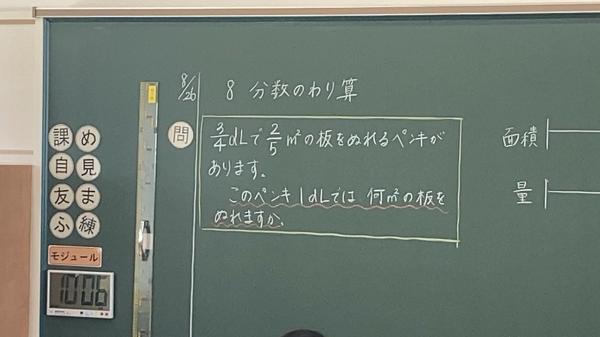 8/26
8 分数のわり算
問
3/4dLで2/5m²の板をぬれるペンキが
あります。
このペンキ1dLでは何m²の板を
ぬれますか。
面積
量
課 め
自 見
友 ま
ふ 練
モジュール
10:06